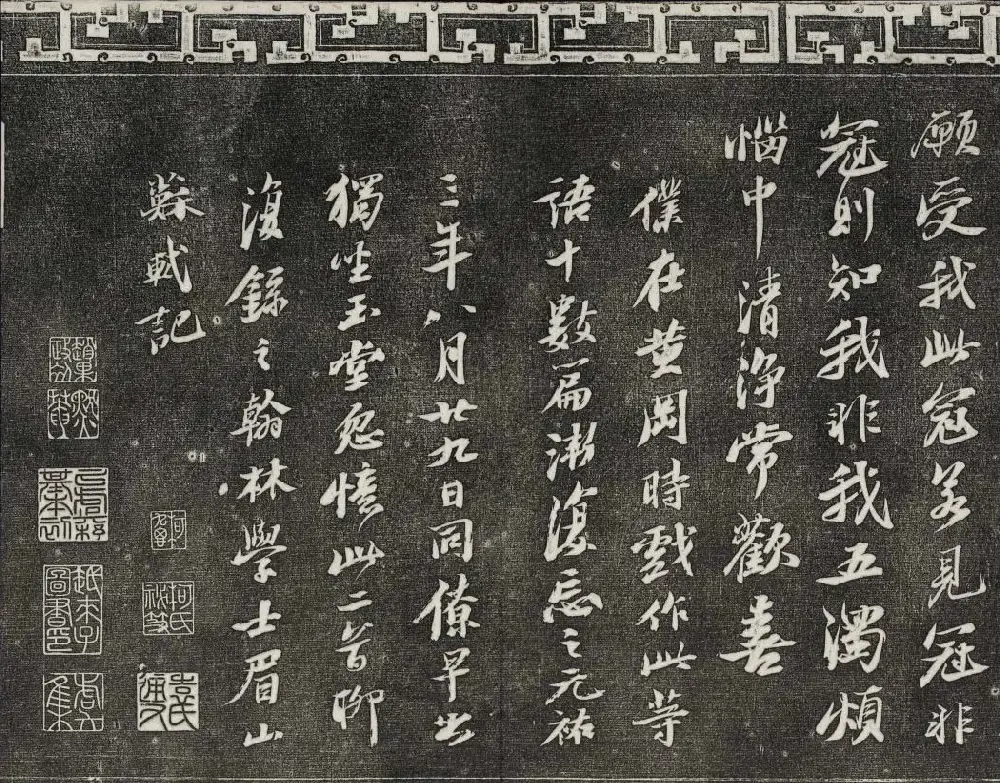 願受我此冠若見冠非
冠則知我非我五濁煩
惱中清淨常歡喜
僕在黃岡時戲作此等
語十數篇漸復忘之元祐
三年八月廿九日同僚早出
獨坐玉堂忽憶此二首聊
復錄之翰林學士眉山
蘇軾記